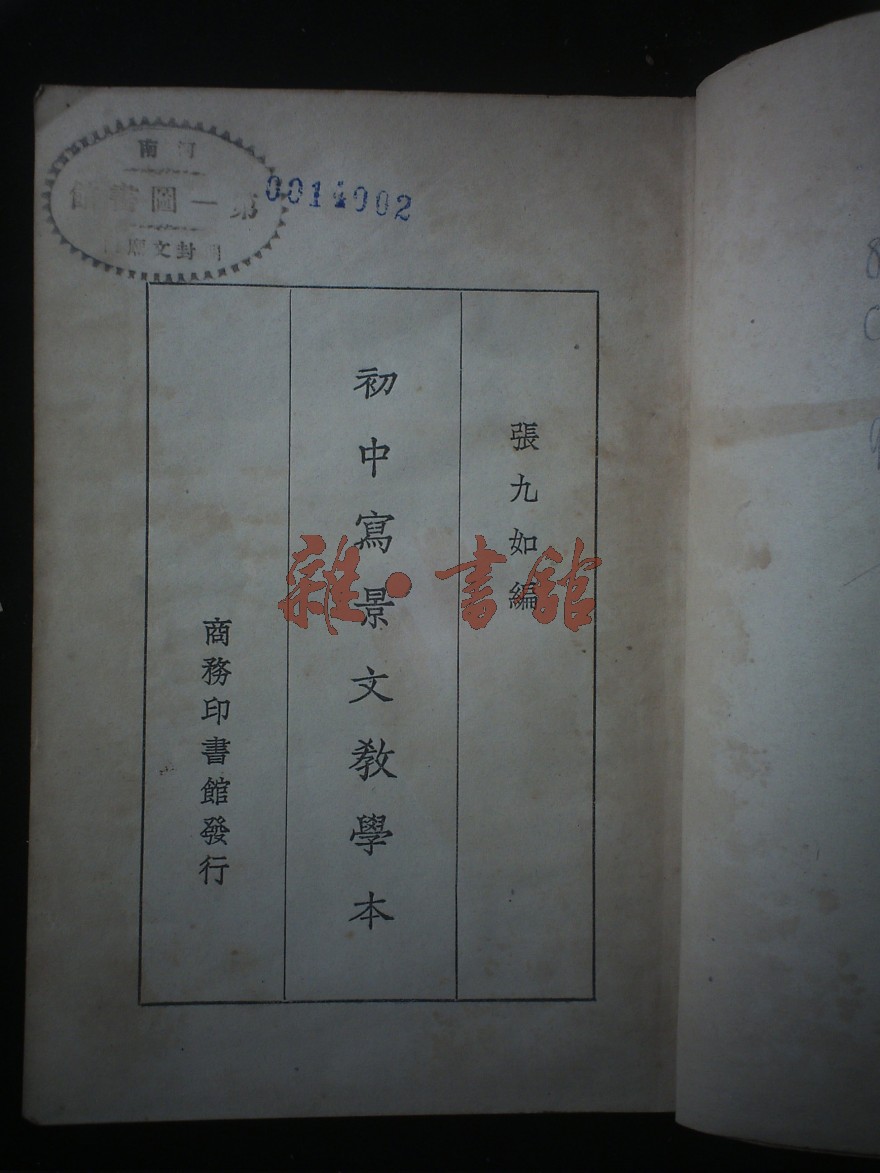 河南
第一圖書館
0014002
張九如編
初中寫景文教學本
商務印書館發行
雜·書館